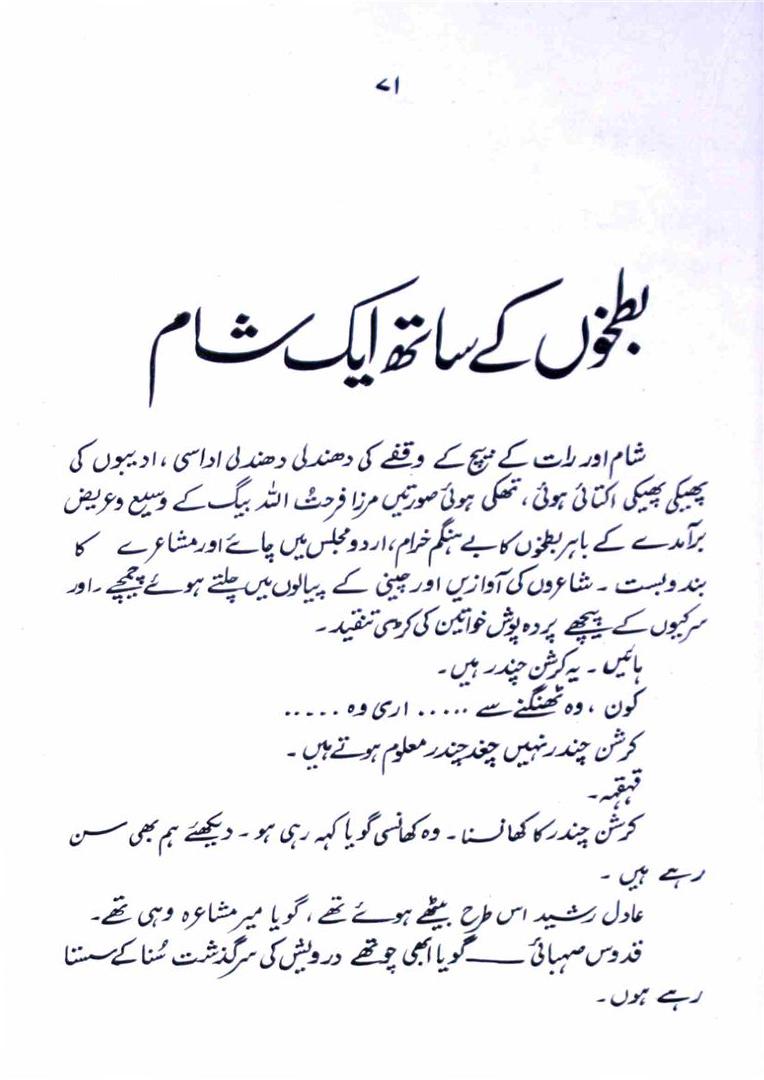 ۷۱
بطخوں کے ساتھ ایک شام
شام اور رات کے بیچ کے وقفے کی دھندلی دھندلی اداسی ، ادیبوں کی
پھیکی پھیکی اکتائی ہوئی ، تھکی ہوئی صورتیں مرزا فرحتُ اللہ بیگ کے وسیع و عریض
برآمدے کے باہر بطخوں کا بے ہنگم خرام، اردو مجلس میں چائے اور مشاعرے کا
بندوبست ۔ شاعروں کی آوازیں اور چینی کے پیالوں میں چلتے ہوئے چمچے ۔ اور
سرکیوں کے پیچھے پردہ پوش خواتین کی کڑی تنقید ۔
ہائیں ۔ یہ کرشن چندر ہیں۔
کون ، وہ ٹھنگنے سے ..... اری وہ .....
کرشن چندر نہیں چغد چندر معلوم ہوتے ہیں ۔
قہقہہ ۔
کرشن چندر کا کھانسنا ۔ وہ کھانسی گویا کہہ رہی ہو ۔ دیکھئے ہم بھی سن
رہے ہیں ۔
عادل رشید اس طرح بیٹھے ہوئے تھے ، گویا میر مشاعرہ وہی تھے۔
قدوس صہبائی ـــــ گویا ابھی چوتھے درویش کی سرگذشت سُنا کے سستا
رہے ہوں ۔